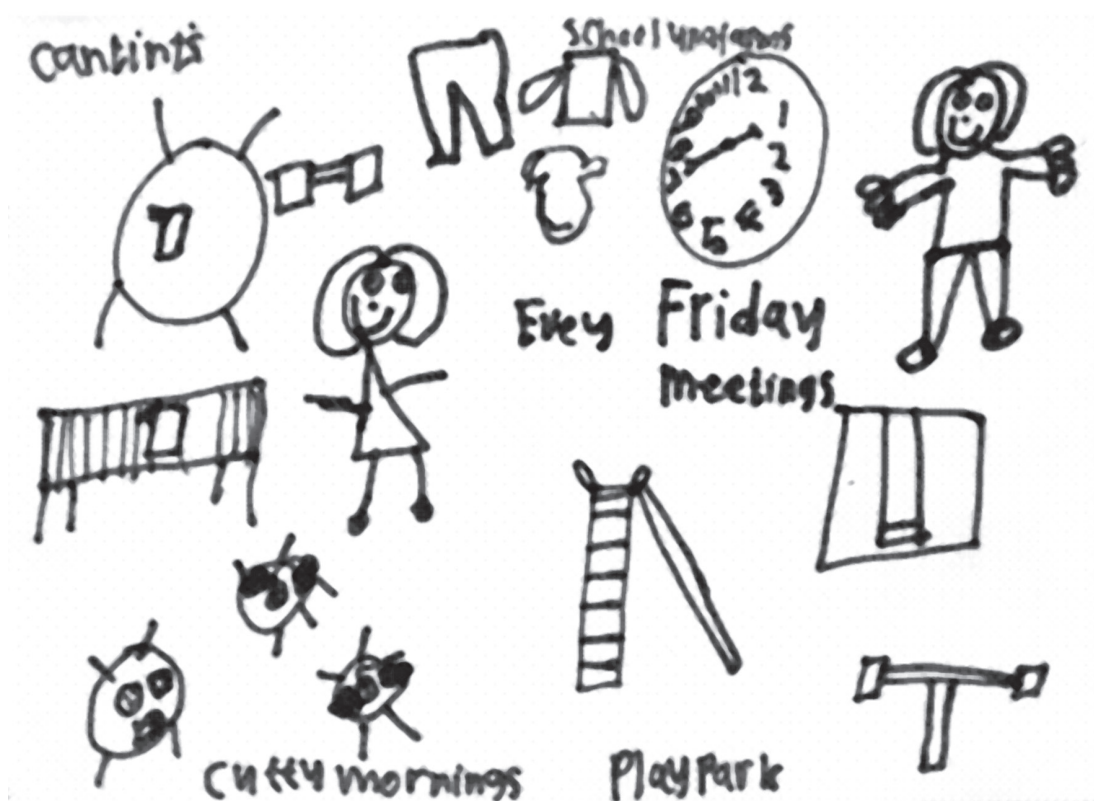 Cantints
School Unafarms
12
11
10
9
8
7
6
5
4
3
2
1
Evey Friday
meetings
Cuttymornings
Play Park